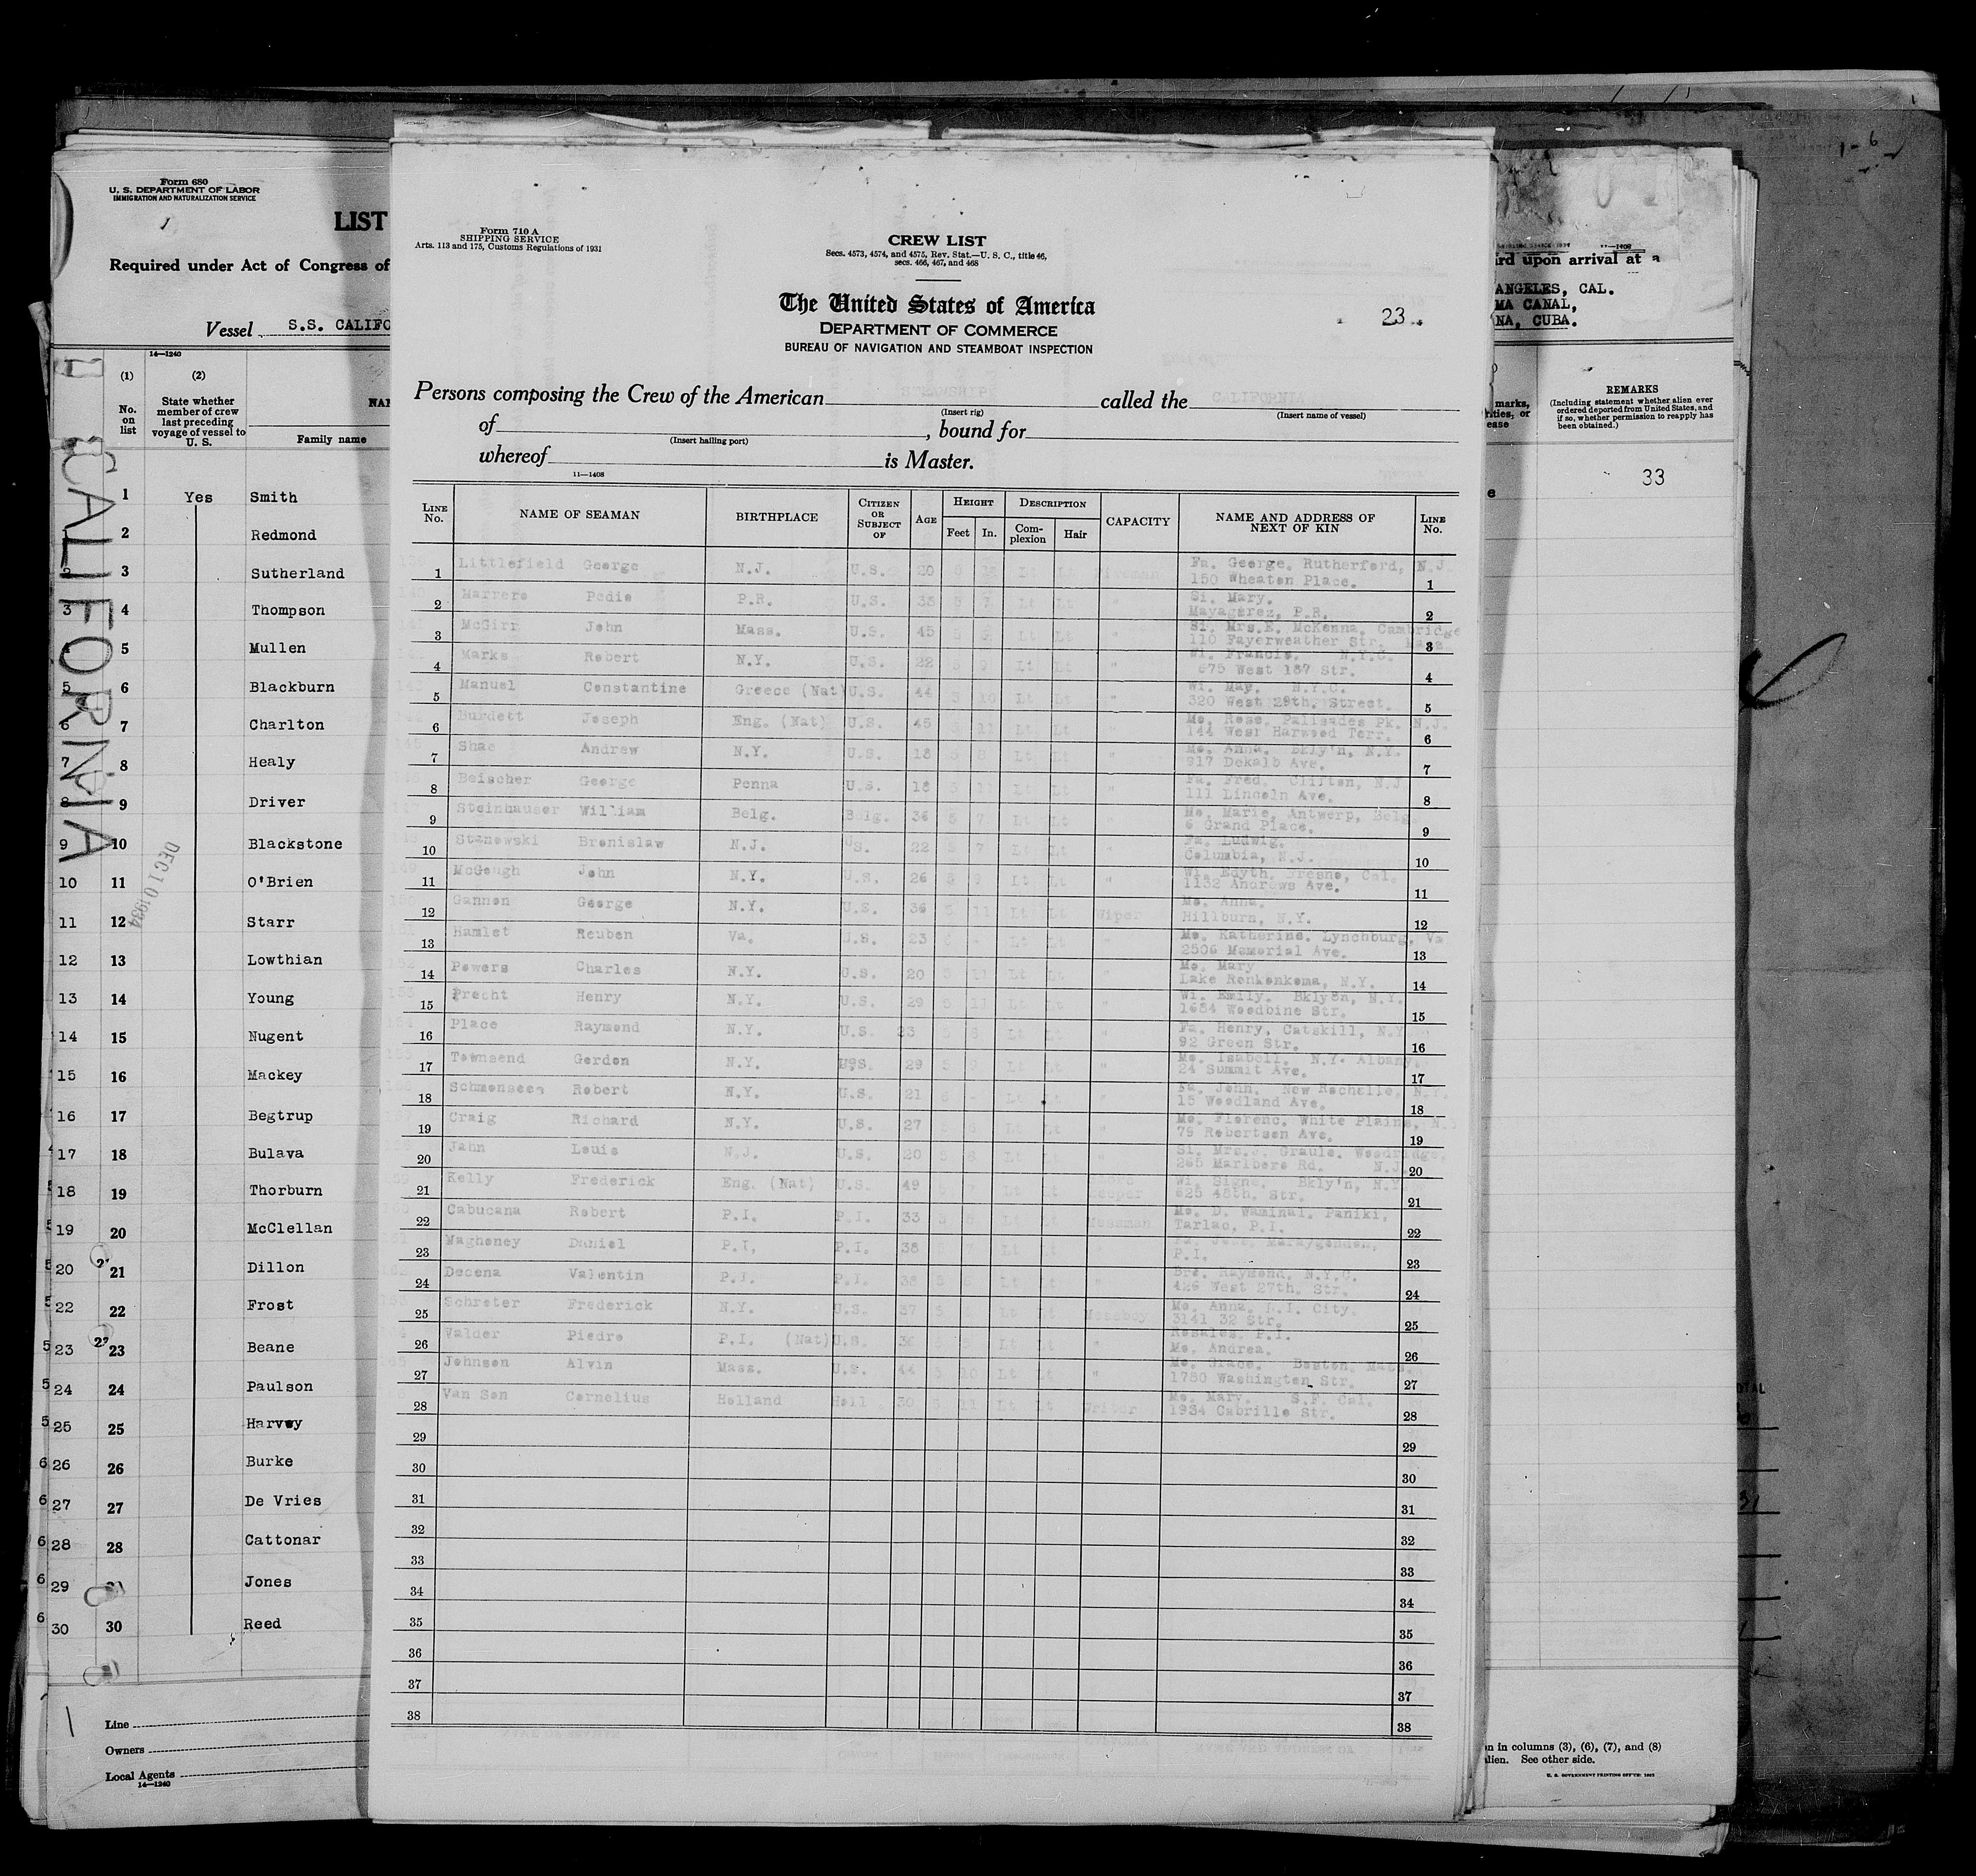 Form 680
U. S. DEPARTMENT OF LABOR
IMMIGRATION AND NATURALIZATION SERVICE
LIST
Required under Act of Congress of
Vessel S.S. CALIFO
14—1240
(1) (2)
No. on list
State whether member of crew last preceding voyage of vessel to U. S.
Family name
CALIFORNIA
DEC 10 1934
1 Yes Smith
2 Redmond
3 Sutherland
3 4 Thompson
5 Mullen
5 6 Blackburn
6 7 Charlton
7 8 Healy
8 9 Driver
9 10 Blackstone
10 11 O'Brien
11 12 Starr
12 13 Lowthian
13 14 Young
14 15 Nugent
15 16 Mackey
16 17 Begtrup
17 18 Bulava
18 19 Thorburn
19 20 McClellan
20 21 Dillon
22 22 Frost
23 23 Beane
24 24 Paulson
25 25 Harvey
26 26 Burke
27 27 De Vries
28 28 Cattonar
29 Jones
30 30 Reed
Line
Owners
Local Agents
14—1240
Form 710 A
SHIPPING SERVICE
Arts. 113 and 175, Customs Regulations of 1931
CREW LIST
Secs. 4573, 4574, and 4575, Rev. Stat.—U. S. C., title 46,
secs. 466, 467, and 468
The United States of America
DEPARTMENT OF COMMERCE
BUREAU OF NAVIGATION AND STEAMBOAT INSPECTION
23
Persons composing the Crew of the American STEAMSHIP called the CALIFORNIA
(Insert rig) (Insert name of vessel)
of , bound for
(Insert hailing port)
whereof is Master.
11—1408
LINE No. NAME OF SEAMAN BIRTHPLACE CITIZEN OR SUBJECT OF AGE HEIGHT DESCRIPTION CAPACITY NAME AND ADDRESS OF NEXT OF KIN LINE No.
Feet In. Complexion Hair
1 Littlefield George N.J. U.S. 20 Lt Lt Fireman Fa. George. Rutherford, N.J.
150 Wheaton Place. 1
2 Marrero Pedie P.R. U.S. 35 Lt Lt " Si. Mary.
Mayaguez, P.R. 2
3 McGirr John Mass. U.S. 45 Lt Lt " Si. Mrs.E. McKenna, Cambridge
110 Fayerweather Str. 3
4 Marks Robert N.Y. U.S. 22 5 9 Lt Lt " Wi. Francis. N.Y.C.
575 West 187 Str. 4
5 Manuel Constantine Greece (Nat) U.S. 44 5 10 Lt Lt " Wi. May. N.Y.C.
320 West 29th. Street. 5
6 Burdett Joseph Eng. (Nat) U.S. 45 5 11 Lt Lt " Mo. Rose. Palisades Pk. N.J.
144 West Harwood Terr. 6
7 Shae Andrew N.Y. U.S. 18 5 8 Lt Lt " Mo. Anna. Bkly'n, N.Y.
917 Dekalb Ave. 7
8 Beischer George Penna U.S. 18 5 11 Lt Lt " Fa. Fred. Clifton, N.J.
111 Lincoln Ave. 8
9 Steinhauser William Belg. Belg. 36 5 7 Lt Lt " Mo. Marie, Antwerp, Belg.
6 Grand Place. 9
10 Stanowski Bronislaw N.J. U.S. 22 5 7 Lt Lt " Fa. Ludwig.
Columbia, N.J. 10
11 McGough John N.Y. U.S. 26 5 9 Lt Lt " Wi. Edyth, Fresno, Cal.
1132 Andrews Ave. 11
12 Gannon George N.Y. U.S. 36 5 11 Lt Lt Wiper Mo. Anna.
Hillburn, N.Y. 12
13 Hamlet Reuben Va. U.S. 23 6 - Lt Lt " Mo. Katherine. Lynchburg, Va
2506 Memorial Ave. 13
14 Powers Charles N.Y. U.S. 20 5 11 Lt Lt " Mo. Mary
Lake Ronkonkoma, N.Y. 14
15 Precht Henry N.Y. U.S. 29 5 11 Lt Lt " Wi. Emily. Bkly8n, N.Y.
1684 Woodbine Str. 15
16 Place Raymond N.Y. U.S. 23 5 8 Lt Lt " Fa. Henry, Catskill, N.Y
92 Green Str. 16
17 Townsend Gordon N.Y. U.S. 29 5 9 Lt Lt " Mo. Isabell. N.Y. Albany.
24 Summit Ave. 17
18 Schmonsees Robert N.Y. U.S. 21 6 - Lt Lt Fa. John, New Rochelle, N.Y.
15 Woodland Ave. 18
19 Craig Richard N.Y. U.S. 27 5 Lt Lt " Mo. Florenc. White Plains, N.
79 Robertson Ave. 19
20 Jahn Louis N.J. U.S. 20 5 8 Lt Lt " Si. Mrs. Graule. Woodridge,
265 Marlboro Rd. N.J. 20
21 Kelly Frederick Eng. (Nat) U.S. 49 5 7 Lt Lt Keeper Wi. Signe. Bkly'n, N.Y
625 48th. Str. 21
22 Cabucana Robert P.I. P.I. 33 Lt Lt Messman Mo. D. Waminal. Paniki,
Tarlac, P.I. 22
23 Magheney Daniel P.I, P.I. 38 Lt Lt "
P.I. 23
24 Decena Valentin P.I. P.I. 38 Lt Lt " Bro. Raymond, N.Y.C.
426 West 27th. Str. 24
25 Schreter Frederick N.Y. U.S. 37 5 Lt Lt Messboy Mo. Anna. L.I. City.
3141 32 Str. 25
26 Valder Piedro P.I. (Nat) U.S. 36 Lt Lt " Rosales, P.I.
Mo. Andrea. 26
27 Johnson Alvin Mass. U.S. 44 5 10 Lt Lt " Mo. Grace. Boston, Mass.
1780 Washington Str. 27
28 Van Son Cornelius Holland Holl 30 5 11 Lt Lt Mo. Mary. S.F. Cal.
1934 Cabrillo Str. 28
29 29
30 30
31 31
32 32
33 33
34 34
35 35
36 36
37 37
38 38
rd upon arrival at a
ANGELES, CAL.
MA CANAL,
NA, CUBA.
marks,
REMARKS
(Including statement whether alien ever ordered deported from United States, and if so, whether permission to reapply has been obtained.)
33
n in columns (3), (6), (7), and (8)
lien. See other side.
U. S. GOVERNMENT PRINTING OFFICE
1-6